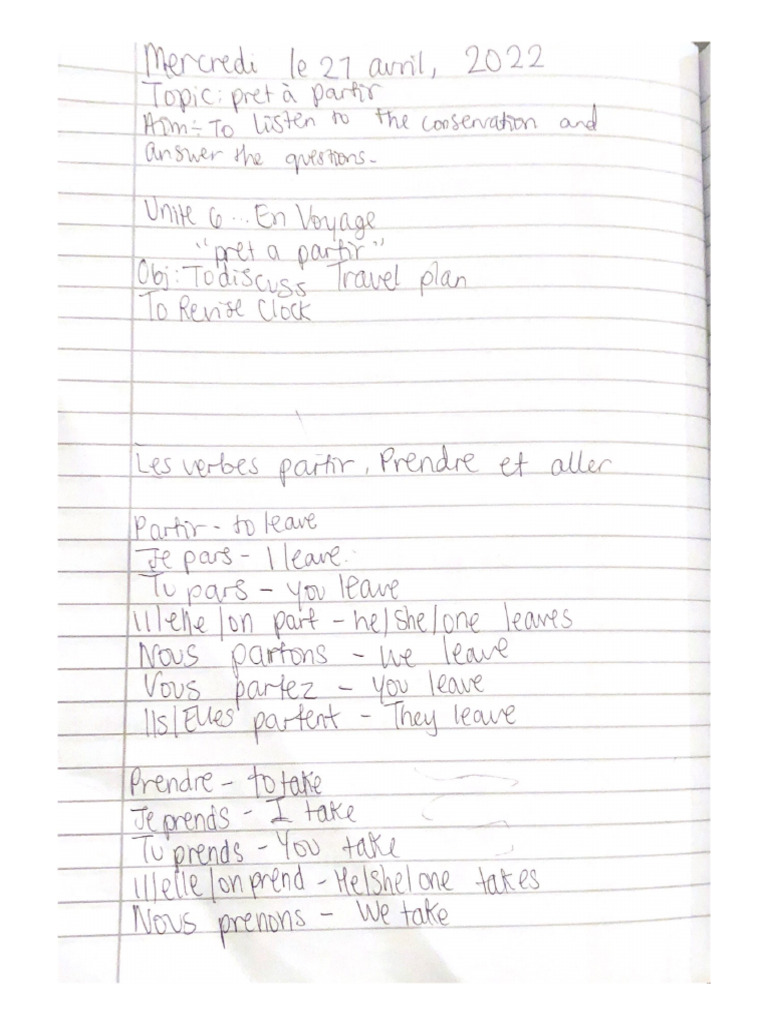 Mercredi le 27 avril, 2022
Topic: pret à partir
Aim:- To listen to the conservation and
answer the questions-
Unite 6 ... En Voyage
"pret a partir"
Obj: To discuss Travel plan
To Revise Clock
Les verbes partir, Prendre et aller
Partir - to leave
Je pars - I leave.
Tu pars - you leave
Il/elle/on part - he/she/one leaves
Nous partons - we leave
Vous partez - you leave
Ils/Elles partent - They leave
Prendre - to take
Je prends - I take
Tu prends - You take
Il/elle/on prend - He/she/one takes
Nous prenons - We take